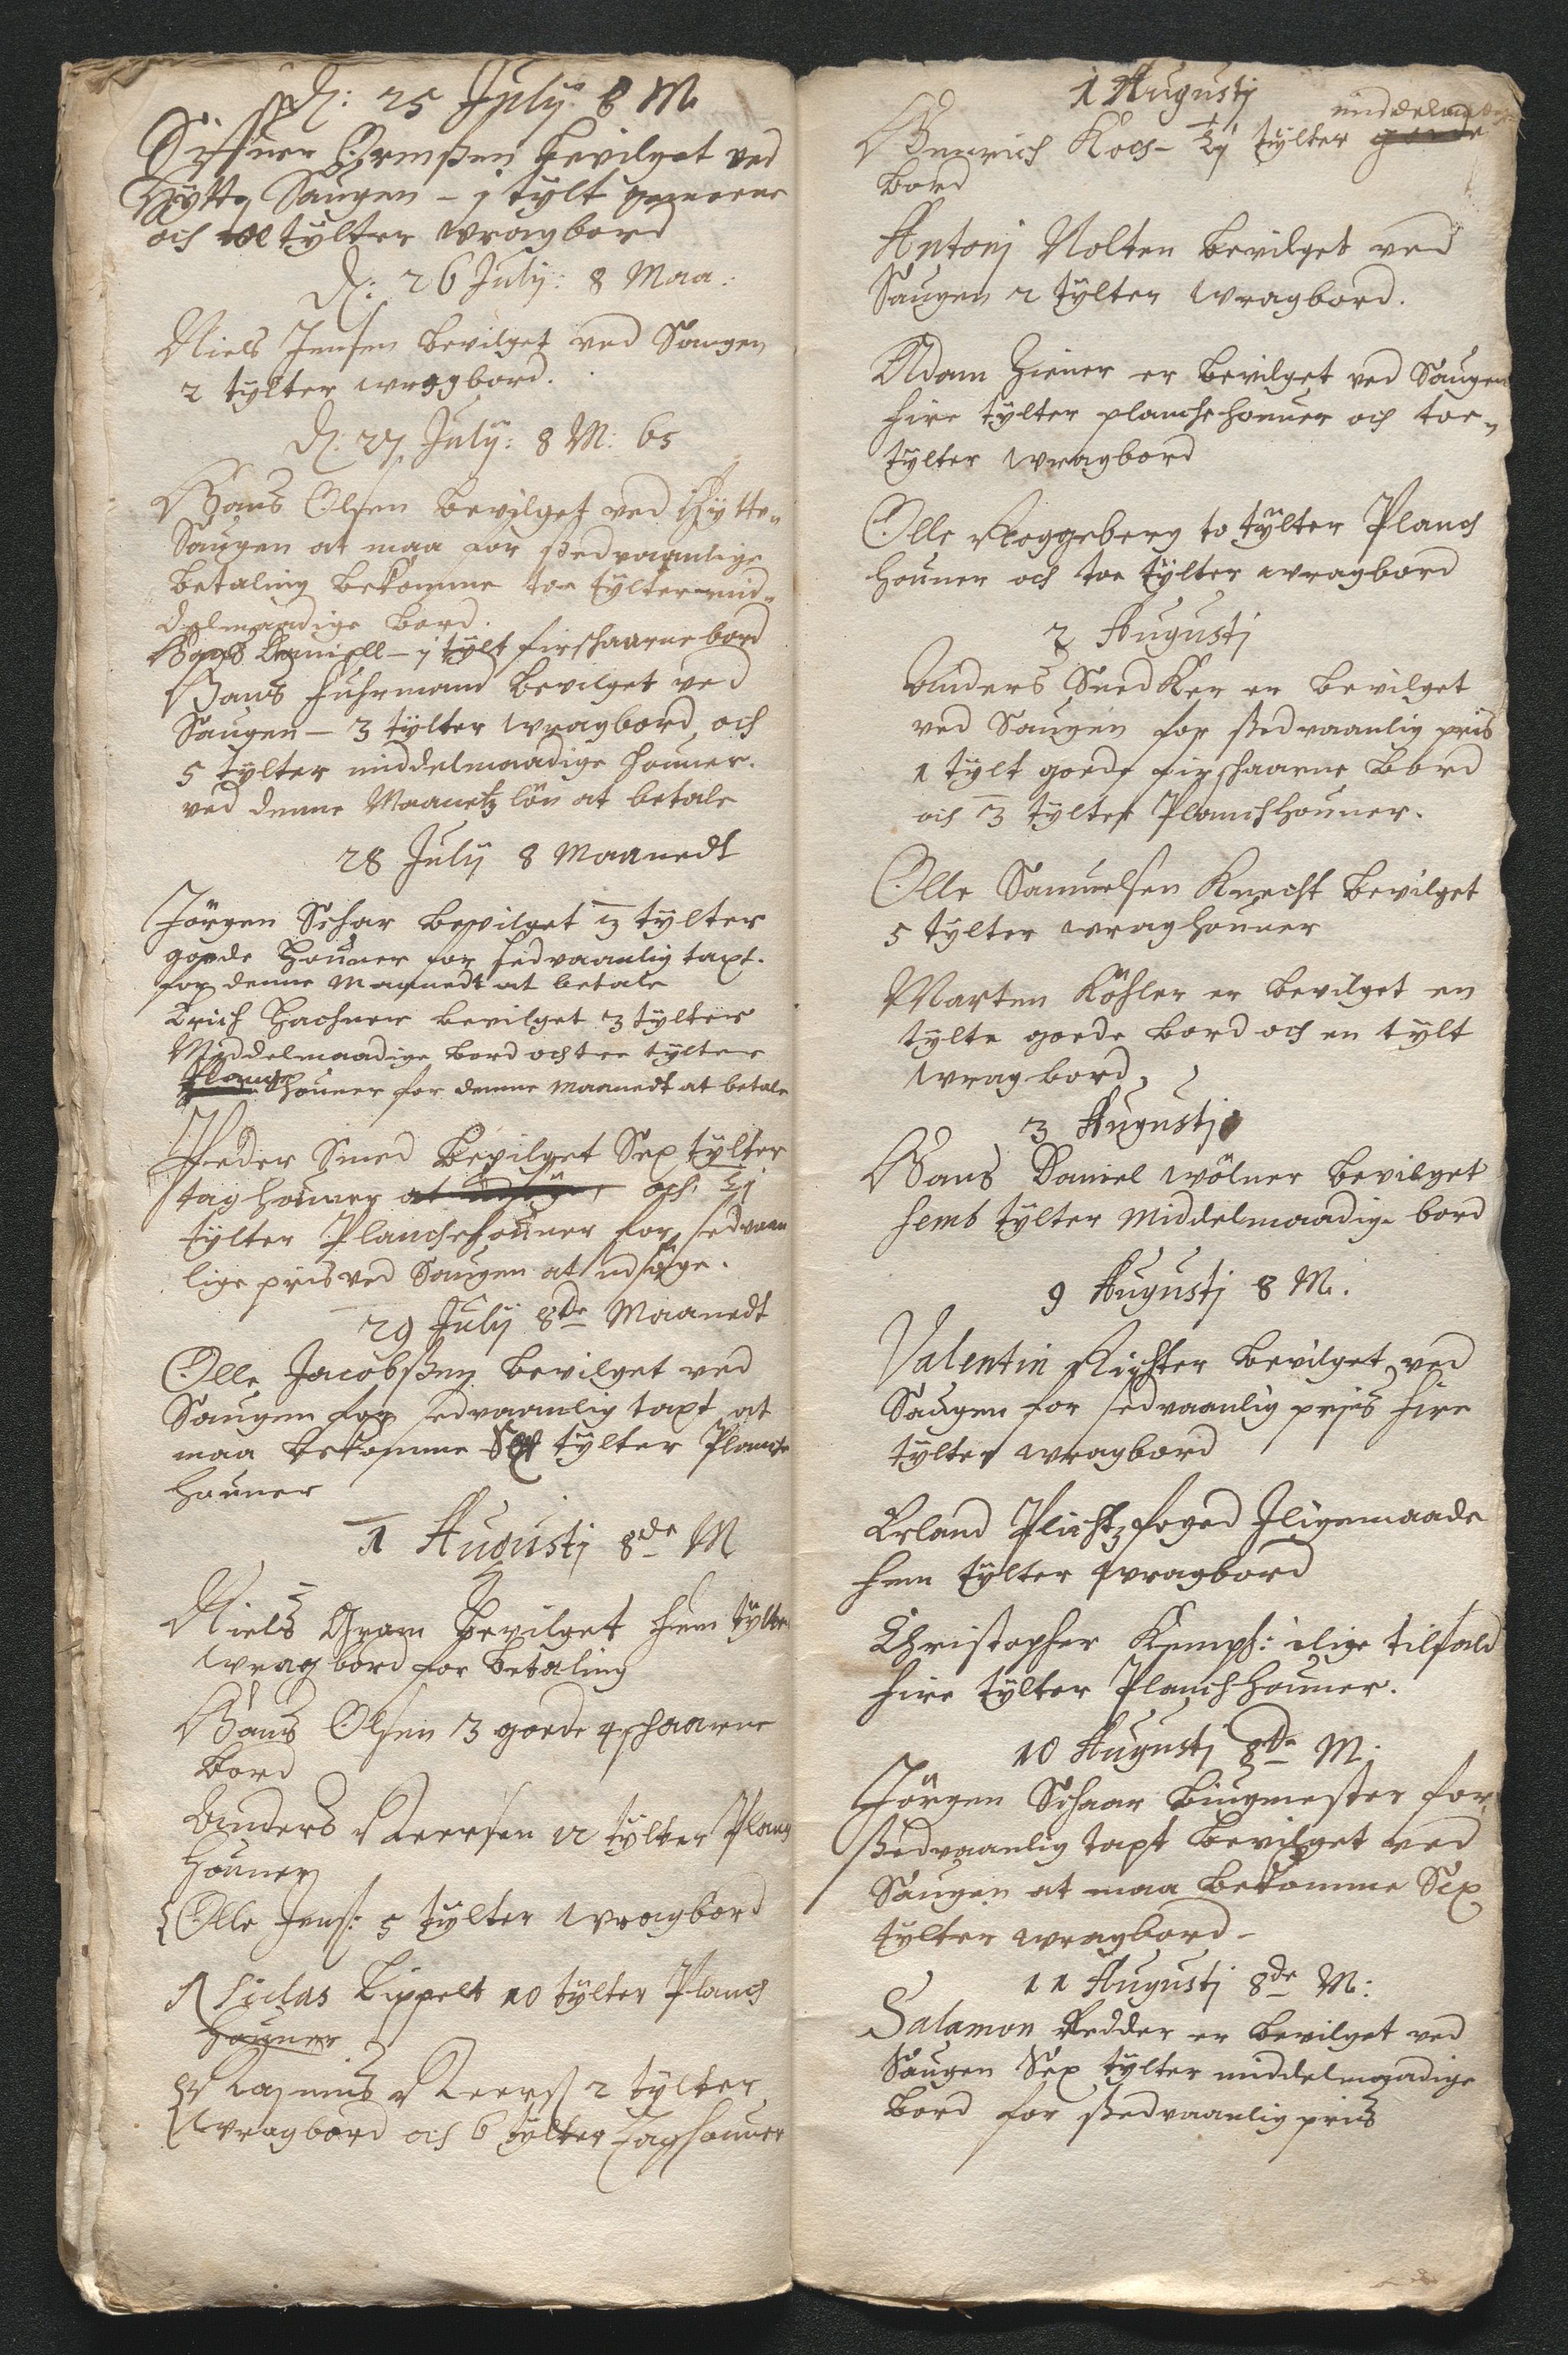 D: 25 Julij 8 M.
Siffuer Ormßen bevilget ved
Hytte Saugen – j tylt
och tylter wragbord
D: 26 Julij: 8 Maa:
Niels Jensen bevilget ved Saugen
2 tylter wragbord.
D: 27 Julij: 8 M: 65
Hans Olsen bevilget ved Hytte„
Saugen at maa for ßedvaanlige
betaling bekomme toe tylter mid„
delmaadige bord.
Hans Daniell – j tylt firschaarne bord
Hans Fuhrmand bevilget ved
Saugen – 3 tylter wragbord och
5 tylter middelmaadige houner.
ved denne Maanetz lön at betale
28 Julij 8 Maanedt
Jörgen Schar bevilget 13 tylter
goede Houner for sedvaanlig taxt.
for denne Maanedt at betale
Erich Hachner bevilget 3 tylter
Middelmaadige bord och tre tylter
Planch houner for denne Maanedt at betale
Peder Smed bevilget Sex tylter
tag houner och
tylter Planchehouner for sedvaan
lige pris ved Saugen at udsöge.
29 Julij 8de Maanedt
Olle Jacobßen bevilget ved
Saugen for sedvaanlig taxt at
maa bekomme Sex tylter Planche
houner
1 Augustj 8de M
Niels Gram bevilget fem tylter
wrag bord for betaling
Hans Olsen 3 goede 4schaarne
bord
Anders Peersen 12 tylter Planch
houner
Olle Jens: 5 tylter wragbord
Niclas Lippelt 10 tylter Planch
houner
Rasmus Peerß 2 tylter
wragbord och 6 tylter taghouner
1 Augustj
Henrich Koch – tylter goede middelmaadige
bord
Antonj Nolten bevilget ved
Saugen 2 tylter wragbord.
Adam Ziener er bevilget ved Saugen
fire tylter planchehouner och toe„
tylter wragbord
Olle Roggeberg to tylter Planch
houner och toe tylter wragbord
2 Augustj
Anders Snedker er bevilget
ved Saugen for ßedvaanlig pris
1 tylt goede firschaarne bord
och 3 tylter Planchhouner.
Olle Samuelsen Knecht bevilget
5 tylter wraghouner
Marten Köhler er bevilget en
tylte goede bord och en tylt
wrag bord
3 Augustj
Hans Daniel Wölner bevilget
femb tylter Middelmaadige bord
9 Augustj 8 M.
Valentin Richter bevilget ved
Saugen for sedvaanlig prjs fire
tylter wragbord
Erland Plichtzfoged Jligemaade
fem tylter wragbord
Christopher Kempf: ilige tilfald
fire tylter Planchhouner.
10 Augustj 8de M:
Jörgen Schaar Biugmester for
ßedvaanlig taxt bevilget ved
Saugen at maa bekomme Sex
tylter wragbord –
11 Augustj 8de M:
Salamon Redder er bevilget ved
Saugen Sex tylter middelmaadige
bord for ßedvaanlig priis